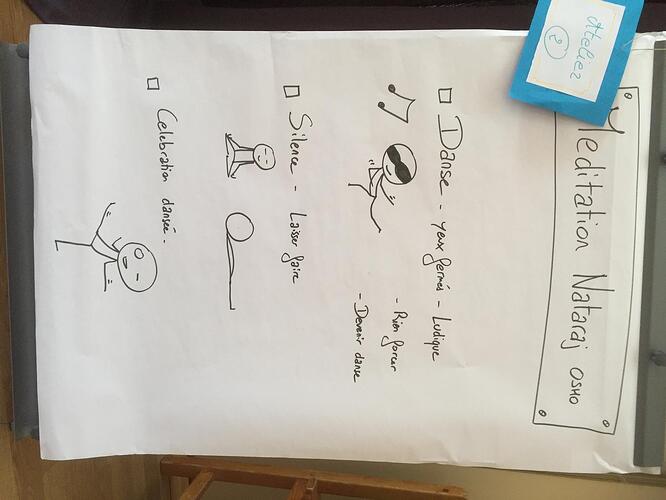 Atelier
2
Meditation Nataraj OSHO
Danse - yeux fermés - Ludique
- Rien forcer
- Devenir danse
Silence - Laisser faire
Celebration dansée.